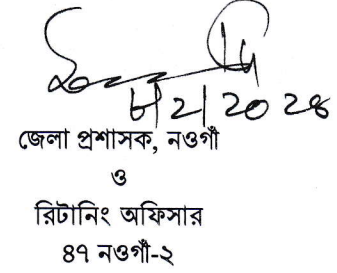 ৮/2/2024
জেলা প্রশাসক, নওগাঁ
ও
রিটার্নিং অফিসার
৪৭ নওগাঁ-২